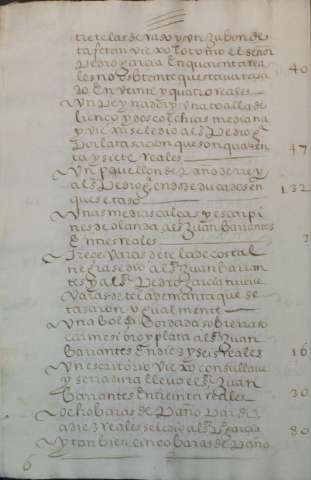 tiretelas de raso y un Jubon de
tafetan viexo lo tomo el señor
Pedro garcia En quarenta rea
les no obstante questava tasa
do En veinte y quatro reales 40
Un Peynador y Una toalla de
lienço y dos colchias mediana
y viexa se le dio al s.r Pedro g.a
Por la tasacion que son quaren
ta y siete reales 47
Un de Paño de Rey
al s.r Pedro g.a en doze ducados en
que se taso 132
Unas medias calças y escarpi
nes de olanda al s.r Juan Barrantes
En tres reales 3
Treze Varas de tela de costal
negra se dio al s.r Juan Barran
tes y al s.r Pedro garcia nueve
Varas de tela de manta que se
tasaron ygualmente
Una bolsa Bordada sobre raso
carmesi oro y plata al s.r Juan
Barrantes En diez y seis reales 16
Un escritorio viexo con su llave
y serradura llevo el s.r Juan
Barrantes En treinta reales 30
Ocho baras de Paño Pardi
a diez reales se dio al s.r P.o garcia 80
Y tanbien cinco baras de Paño
6